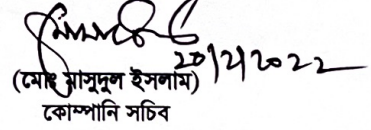 20/2/2022
(মোঃ মাসুদুল ইসলাম)
কোম্পানি সচিব